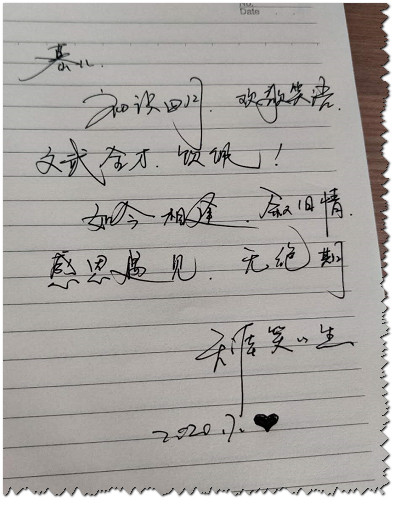 No.
Date
慕儿
初识四月. 欢歌笑语.
文武全才. 饮佩!
如今相逢. 叙旧情.
感恩遇见. 无绝期
天涯笑人生
2020.7.